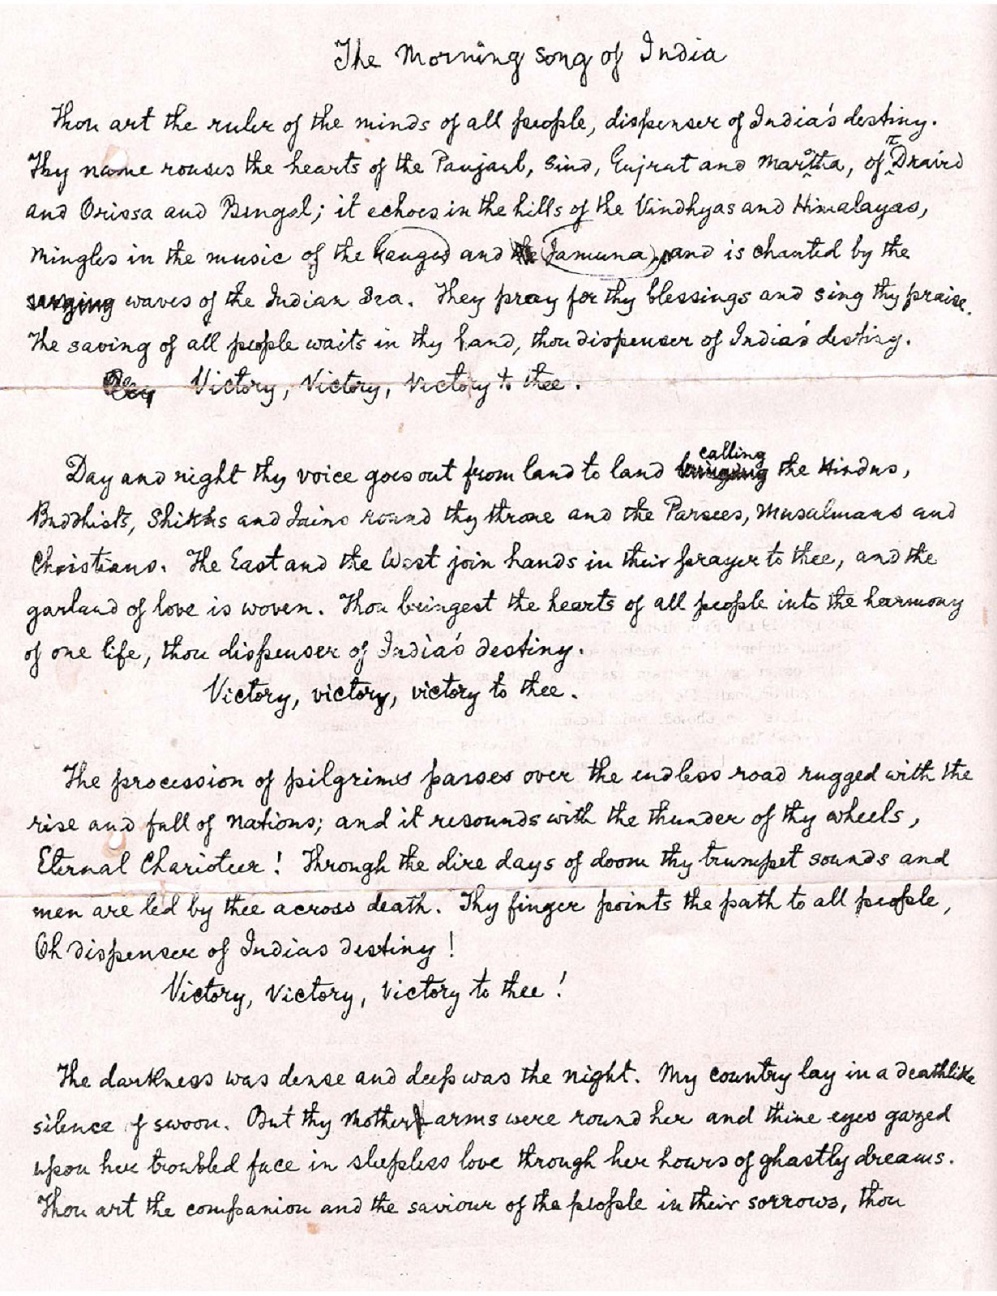 The Morning song of India
Thou art the ruler of the minds of all people, dispenser of India's destiny.
Thy name rouses the hearts of the Panjaub, Sind, Gujrat and Maratha, of Dravid
and Orissa and Bengal; it echoes in the hills of the Vindhyas and Himalayas,
mingles in the music of the Ganges and the Jamuna and is chanted by the
surging waves of the Indian Sea. They pray for thy blessings and sing thy praise.
The saving of all people waits in thy hand, thou dispenser of India's destiny.
Victory, Victory, Victory to thee.
Day and night thy voice goes out from land to land calling the Hindus,
Buddhists, Shikhs and Jains round thy throne and the Parsees, Musulmans and
Christians. The East and the West join hands in their prayer to thee, and the
garland of love is woven. Thou bringest the hearts of all people into the harmony
of one life, thou dispenser of India's destiny.
Victory, victory, victory to thee.
The procession of pilgrims passes over the endless road rugged with the
rise and fall of nations; and it resounds with the thunder of thy wheels,
Eternal Charioteer! Through the dire days of doom thy trumpet sounds and
men are led by thee across death. Thy finger points the path to all people,
Oh dispenser of Indias destiny!
Victory, Victory, Victory to thee!
The darkness was dense and deep was the night. My country lay in a deathlike
silence of swoon. But thy Mother arms were round her and thine eyes gazed
upon her troubled face in sleepless love through her hours of ghastly dreams.
Thou art the companion and the saviour of the people in their sorrows, thou